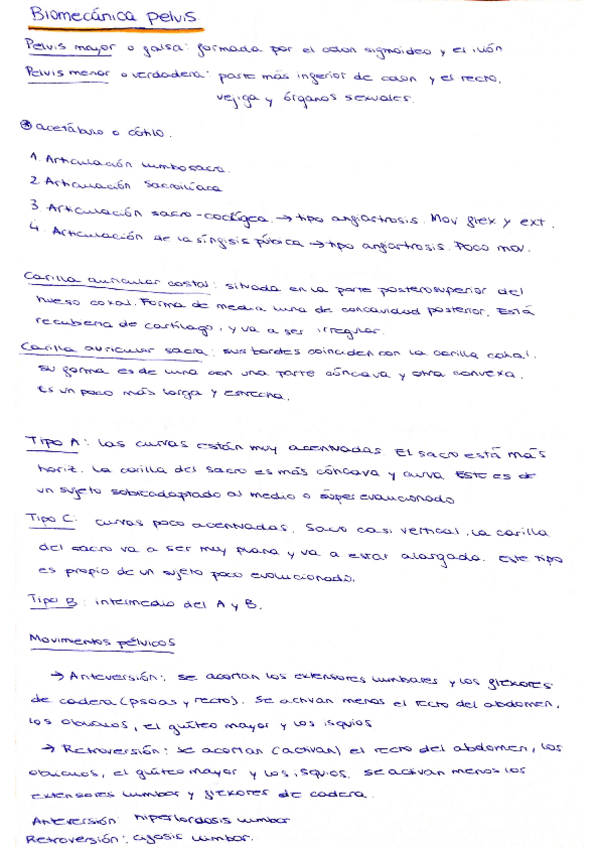 Biomecánica pelvis
Pelvis mayor o falsa: formada por el colon sigmoideo y el ilión
Pelvis menor o verdadera: parte más inferior de colon y el recto,
vejiga y órganos sexuales.
acetábulo o cótilo.
1. Articulación lumbosacra.
2. Articulación sacroilíaca
3. Articulación sacro-coclígea → tipo anfiartrosis. Mov flex y ext.
4. Articulación de la sínfisis púbica → tipo anfiartrosis. Poco mov.
Carilla auricular costal: situada en la parte posterosuperior del
hueso coxal. Forma de media luna de concavidad posterior. Está
recubierta de cartílago, y va a ser irregular.
Carilla auricular sacra: sus bordes coinciden con la carilla coxal.
su forma es de luna con una parte cóncava y otra convexa.
Es un poco más larga y estrecha.
Tipo A: las curvas están muy acentuadas El sacro está más
horiz. La carilla del sacro es más cóncava y curva. Este es de
un sujeto sobreadaptado al medio o súper evolucionado
Tipo C: curvas poco acentuadas. Sacro casi vertical. La carilla
del sacro va a ser muy plana y va a estar alargada. Este tipo
es propio de un sujeto poco evolucionado.
Tipo B: intermedio del A y B.
Movimentos pélvicos
→ Anteversión: se acortan los extensores lumbares y los flexores
de cadera (psoas y recto). Se activan menos el recto del abdomen,
los oblicuos, el glúteo mayor y los isquios
→ Retroversión: se acortan (activan) el recto del abdomen, los
oblicuos, el glúteo mayor y los isquios. Se activan menos los
extensores lumbar y flexores de cadera.
Anteversión: hiperlordosis lumbar
Retroversión: cifosis lumbar.